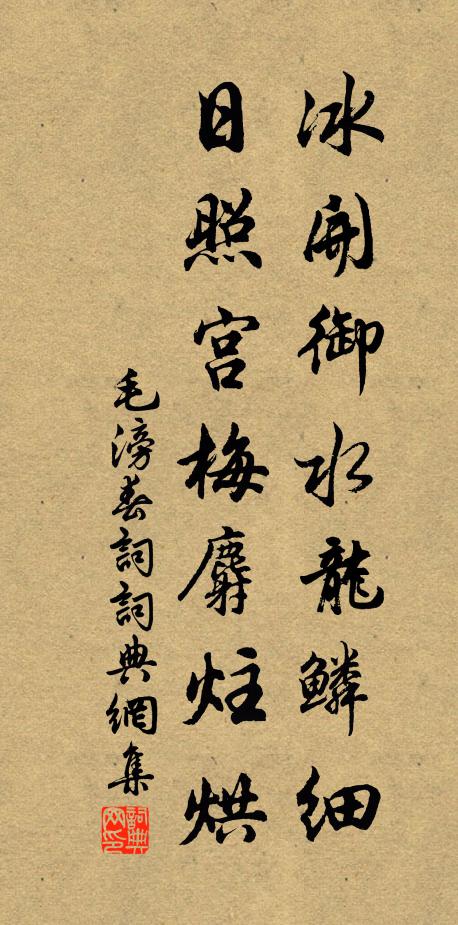 冰開御水龍鱗細
日照宮梅麝炷烘
毛滂春詞詞典網集
詞典网印